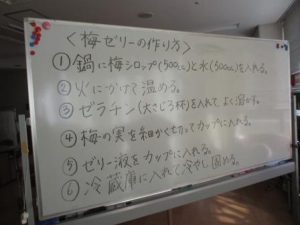 ＜梅ゼリーの作り方＞
①鍋に梅シロップ(500cc)と水(500cc)を入れる。
②火にかけて温める。
③ゼラチン(大さじ3杯)を入れて、よく溶かす。
④梅の実を細かく切ってカップに入れる。
⑤ゼリー液をカップに入れる。
⑥冷蔵庫に入れて冷やし固める。